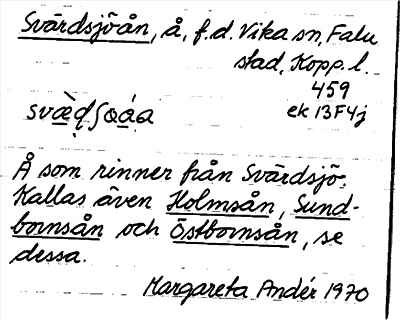 Svärdsjöån, å, f.d. Vika sn, Falu
stad, Kopp. l.
459
ek 13F4j
Å som rinner från Svärdsjö.
Kallas även Holmsån, Sund-
bornsån och Östbornsån, se
dessa.
Margareta Andér 1970